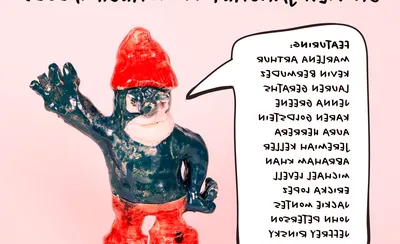 FEATURING:
MARLENA ARTHUR
KEVIN BERMUDEZ
LAUREN GERATHS
JENNA GREENE
KAREN GOLDSTEIN
AURA HERRERA
JEREMIAH KELLER
ABRAHAM KHAN
MICHAEL LEVELL
ERICKA LOPEZ
JACKIE MONTES
JOHN PETERSON
JEFFREY RINSKY